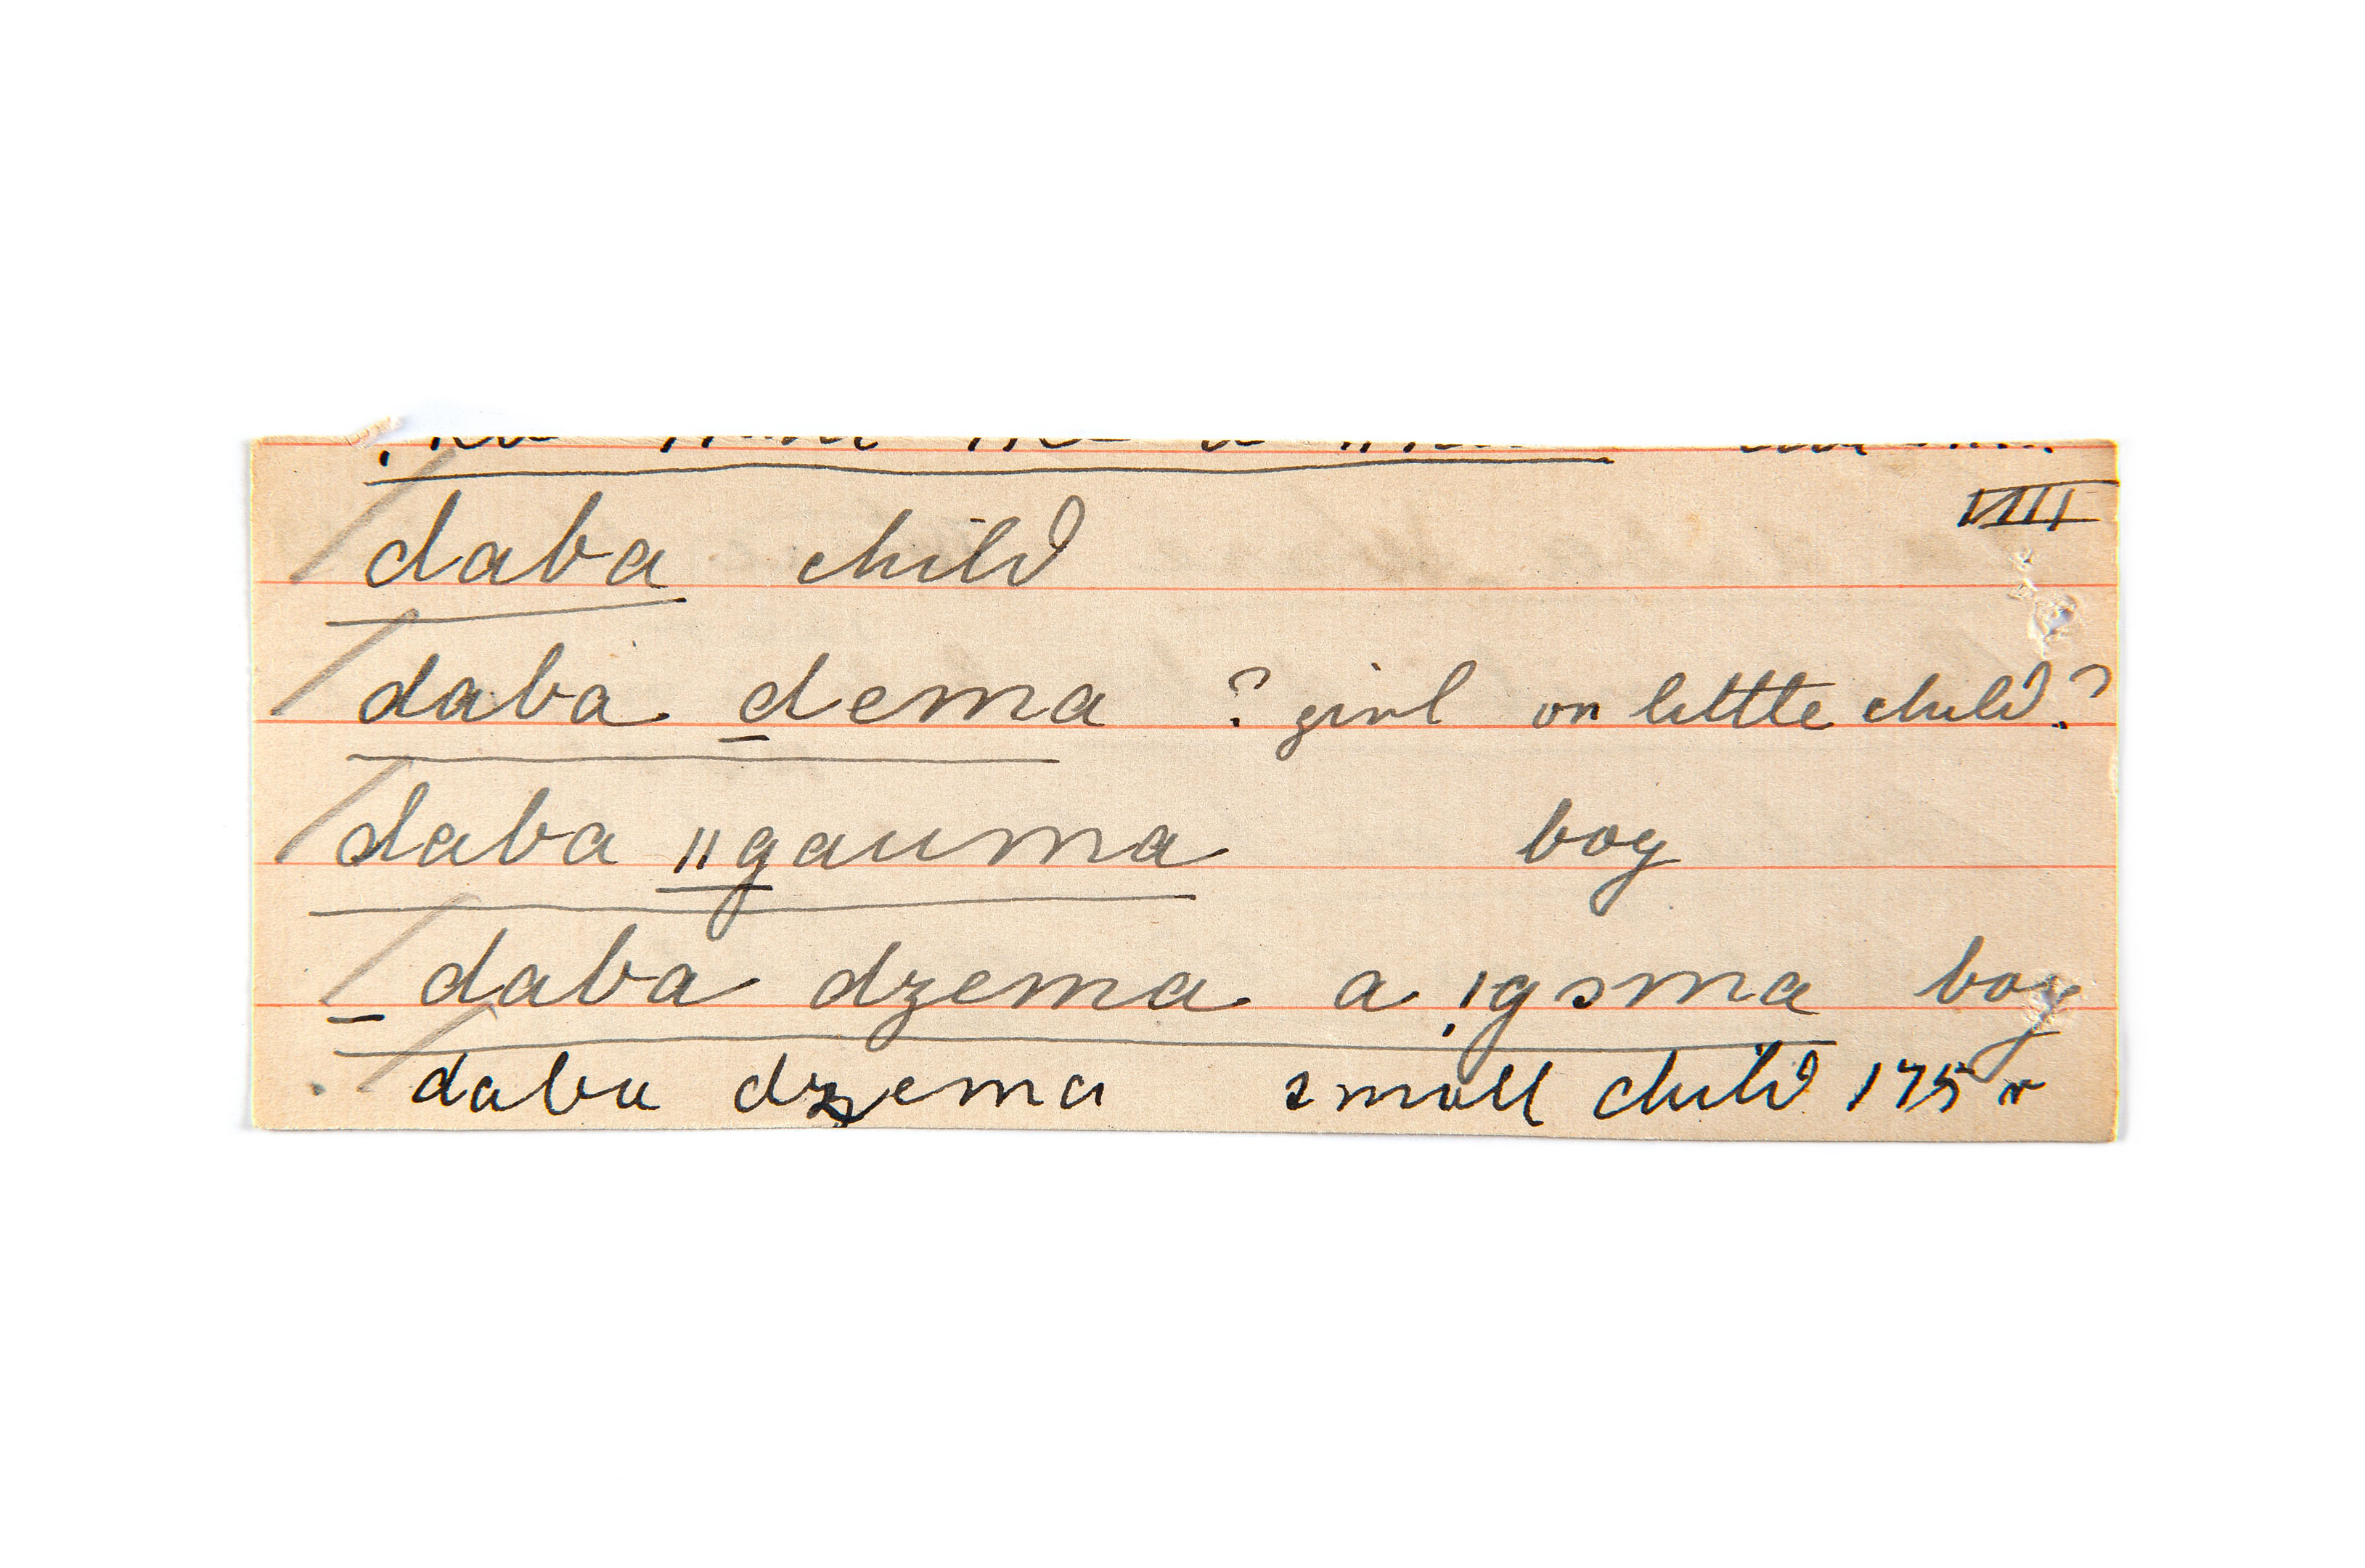 VIII
daba child
daba dema ? girl or little child?
daba ǁgauma boy
daba dzema a ǀgsma boy
daba dzema small child 175 r